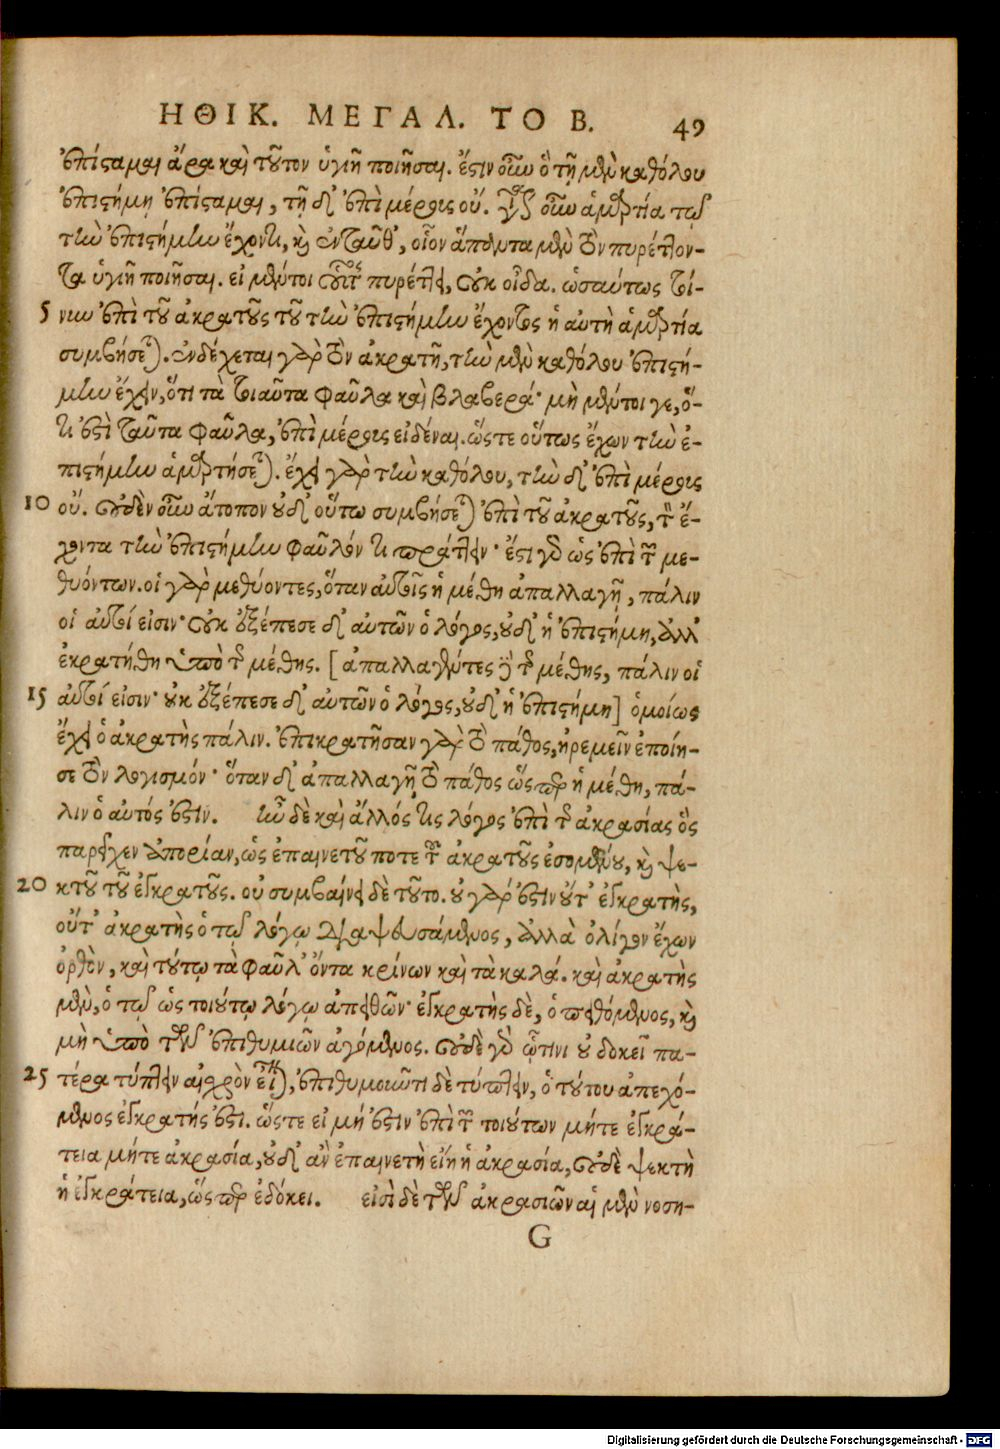 ΗΘΙΚ. ΜΕΓΑΛ. ΤΟ Β. 49
ἐπίσταμαι ἄρα καὶ τοῦτον ὑγιῆ ποιῆσαι. ἔστιν οὖν ὃ τῇ μὲν καθόλου
ἐπιστήμῃ ἐπίσταμαι, τῇ δ' ἐπὶ μέρους οὔ. γένοιτ' οὖν ἁμαρτία τῷ
τὴν ἐπιστήμην ἔχοντι, καὶ ἐνταῦθ', οἷον ἅπαντα μὲν τὸν πυρέττον-
τα ὑγιῆ ποιῆσαι. εἰ μέντοι οὗτος πυρέττει, οὐκ οἶδα. ὡσαύτως τοί-
5 νυν ἐπὶ τοῦ ἀκρατοῦς τοῦ τὴν ἐπιστήμην ἔχοντος ἡ αὐτὴ ἁμαρτία
συμβήσεται. ἐνδέχεται γὰρ τὸν ἀκρατῆ, τὴν μὲν καθόλου ἐπιστή-
μην ἔχειν, ὅτι τὰ τοιαῦτα φαῦλα καὶ βλαβερά· μὴ μέντοι γε, ὅ-
τι ἐστὶ ταῦτα φαῦλα, ἐπὶ μέρους εἰδέναι. ὥστε οὕτως ἔχων τὴν ἐ-
πιστήμην ἁμαρτήσεται. ἔχει γὰρ τὴν καθόλου, τὴν δ' ἐπὶ μέρους
10 οὔ. οὐδὲν οὖν ἄτοπον οὐδ' οὕτω συμβήσεται ἐπὶ τοῦ ἀκρατοῦς, τὸν ἔ-
χοντα τὴν ἐπιστήμην φαῦλόν τι πράττειν· ἔστι γὰρ ὡς ἐπὶ τῶν με-
θυόντων. οἱ γὰρ μεθύοντες, ὅταν αὐτοῖς ἡ μέθη ἀπαλλαγῇ, πάλιν
οἱ αὐτοί εἰσιν· οὐκ ἐξέπεσε δ' αὐτῶν ὁ λόγος, οὐδ' ἡ ἐπιστήμη, ἀλλ'
ἐκρατήθη ὑπὸ τῆς μέθης. [ἀπαλλαγέντες δὲ τῆς μέθης, πάλιν οἱ
15 αὐτοί εἰσιν· οὐκ ἐξέπεσε δ' αὐτῶν ὁ λόγος, οὐδ' ἡ ἐπιστήμη] ὁμοίως
ἔχει ὁ ἀκρατὴς πάλιν. ἐπικρατῆσαν γὰρ τὸ πάθος, ἠρεμεῖν ἐποίη-
σε τὸν λογισμόν· ὅταν δ' ἀπαλλαγῇ τὸ πάθος ὥσπερ ἡ μέθη, πά-
λιν ὁ αὐτός ἐστιν. ἦν δὲ καὶ ἄλλός τις λόγος ἐπὶ τῆς ἀκρασίας ὃς
παρεῖχεν ἀπορίαν, ὡς ἐπαινετοῦ ποτε τοῦ ἀκρατοῦς ἐσομένου, καὶ ψε-
20 κτοῦ τοῦ ἐγκρατοῦς. οὐ συμβαίνει δὲ τοῦτο. οὐ γάρ ἐστιν οὔτ' ἐγκρατὴς,
οὔτ' ἀκρατὴς ὁ τῷ λόγῳ διαψευσάμενος, ἀλλὰ ὁ λόγον ἔχων
ὀρθὸν, καὶ τούτῳ τὰ φαῦλ' ὄντα κρίνων καὶ τὰ καλά. καὶ ἀκρατὴς
μὲν, ὁ τῷ ὡς τοιούτῳ λόγῳ ἀπειθῶν· ἐγκρατὴς δὲ, ὁ πειθόμενος, καὶ
μὴ ὑπὸ τῶν ἐπιθυμιῶν ἀγόμενος. οὐδὲ γὰρ ᾧτινι οὐ δοκεῖ πα-
25 τέρα τύπτειν αἰσχρὸν εἶναι, ἐπιθυμοιῶτι δὲ τύπτειν, ὁ τούτου ἀπεχό-
μενος ἐγκρατής ἐστι. ὥστε εἰ μή ἐστιν ἐπὶ τῶν τοιούτων μήτε ἐγκρά-
τεια μήτε ἀκρασία, οὐδ' ἂν ἐπαινετὴ εἴη ἡ ἀκρασία, οὐδὲ ψεκτὴ
ἡ ἐγκράτεια, ὥσπερ ἐδόκει. εἰσὶ δὲ τῶν ἀκρασιῶν αἱ μὲν νοση-
G
Digitalisierung gefördert durch die Deutsche Forschungsgemeinschaft - DFG